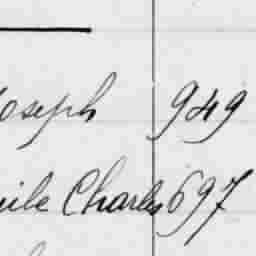 Joseph 949
Charles 697